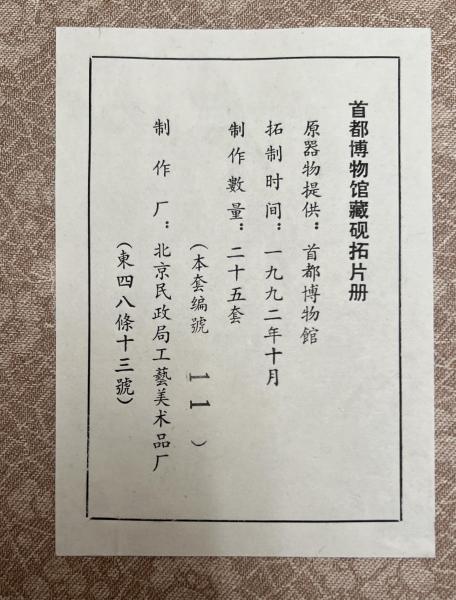 首都博物馆藏砚拓片册
原器物提供：首都博物館
拓制时间：一九九二年十月
制作數量：二十五套
（本套编號 11 ）
制作厂：北京民政局工藝美术品厂
（東四八條十三號）